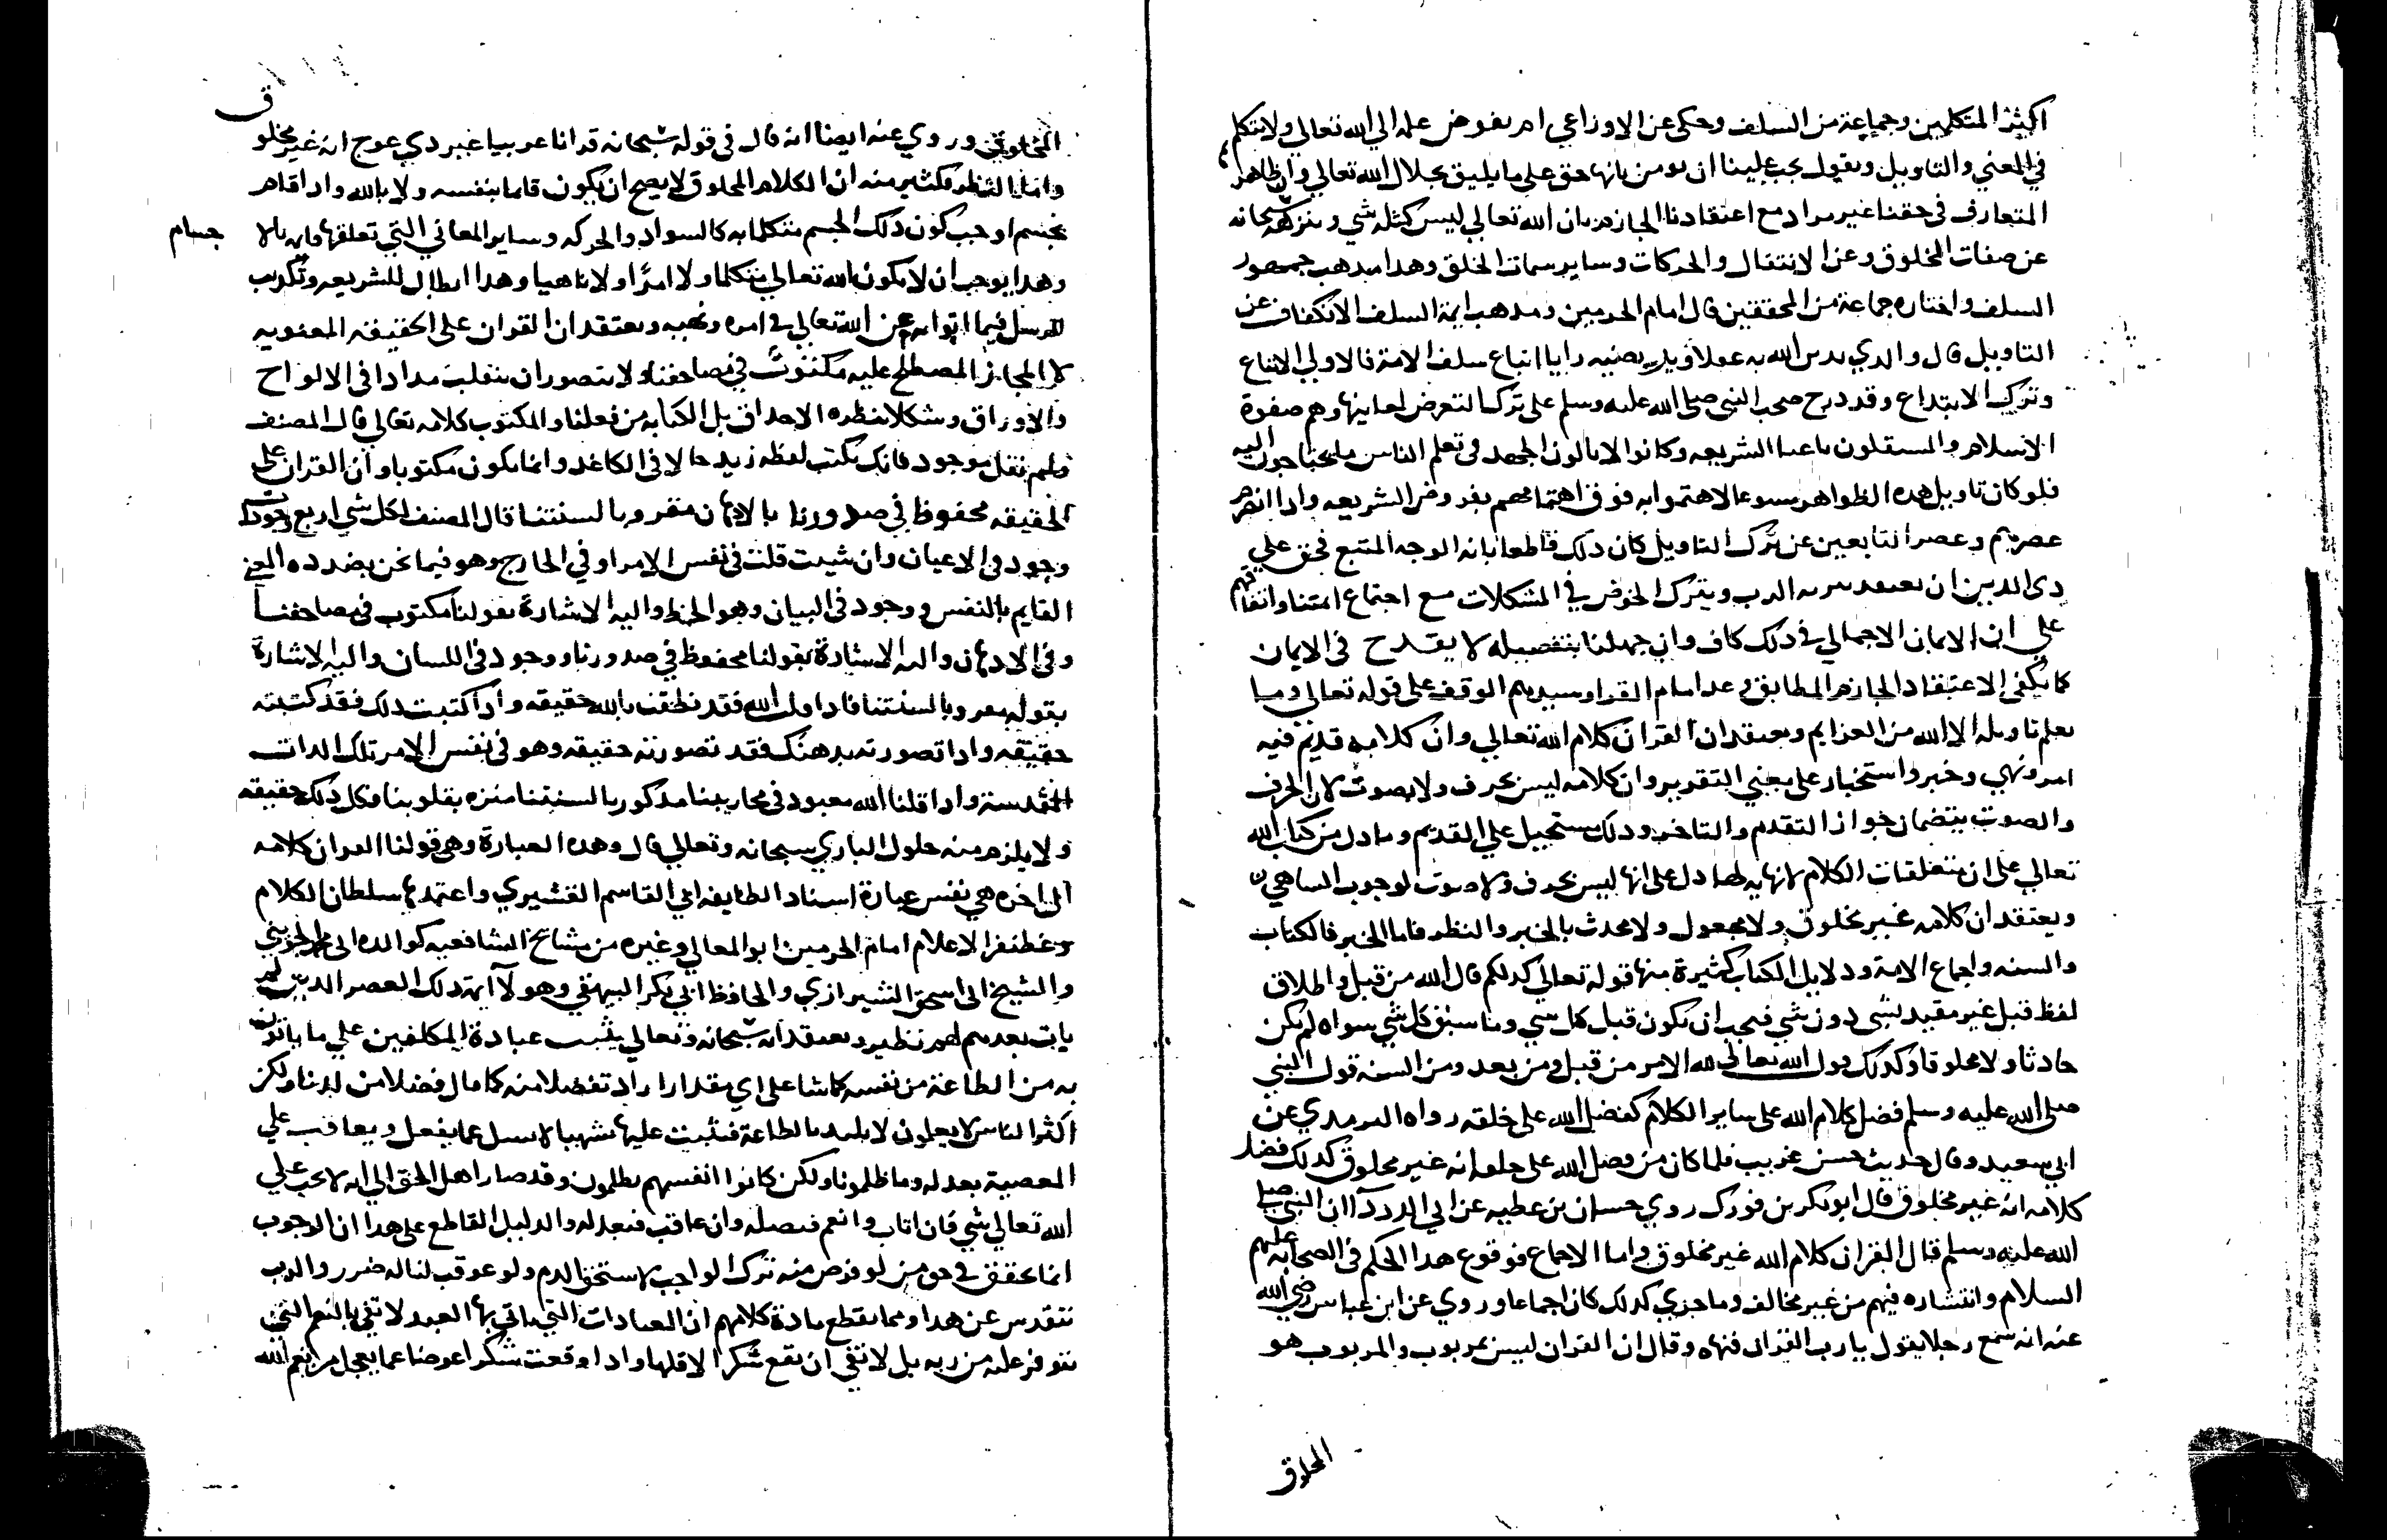 اكثر المتكلمين وجماعة من السلف وحكى عن الاوزاعي امر يفوض علمه الي الله تعالي ولا يتكلم
في المعني والتاويل ويقول يجب علينا ان نومن بانها حق على ما يليق بجلال الله تعالي وان ظاهرها
المتعارف في حقنا غير مراد مع اعتقادنا الجازم بان الله تعالي ليس كمثله شي وننزهه سبحانه
عن صفات المخلوق وعن الانتقال والحركات وساير سمات الخلق وهدا مدهب جمهور
السلف واختاره جماعة من المحققين قال امام الحرمين ومدهب ايمة السلف الانكفاف عن
التاويل قال والدي ندين الله به عقلا ونرتضيه رايا اتباع سلف الامة فالاولي الاتباع
وترك الابتداع وقد درج صحب النبي صلى الله عليه وسلم على ترك التعرض لمعانيها وهم صفوة
الاسلام والمستقلون باعبا الشريعه وكانوا لا يالون الجهد في تعلم الناس ما يحتاجون اليه
فلو كان تاويل هده الظواهر مسوغا لاهتموا به فوق اهتمامهم بفروض الشريعه وادا انصرم
عصرهم وعصر التابعين عن ترك التاويل كان دلك قاطعا بانه الوجه المتبع فحق علي
دى الدين ان يعتقد تنزيه الرب ويترك الخوض في المشكلات مع اجتماع امتنا واتفاقهم
علي ان الايمان الاجمالي في دلك كاف وان جهلنا بتفصيله لا يقدح في الايمان
كما يكفي الاعتقاد الجازم المطابق وعد امام القرا وسيدهم الوقف على قوله تعالى وما
يعلم تاويله الا الله من العزايم ويعتقد ان القران كلام الله تعالي وان كلامه قديم فيه
امر ونهي وخبر واستخبار على معني التقرير وان كلامه ليس بحرف ولا بصوت لان الحرف
والصوت يتضمان جواز التقدم والتاخر ودلك مستحيل علي القديم وما دل من كتاب الله
تعالي على ان متعلقات الكلام لا نهايه لها دل على انها ليس بحرف ولا صوت لوجوب التناهي
ويعتقد ان كلامه غير مخلوق ولا مجعول ولا محدث بالخبر والنظر فاما الخبر فالكتاب
والسنه واجماع الامة ودلايل الكتاب كثيرة منها قوله تعالى كدلكم قال الله من قبل واطلاق
لفظ قبل غير مقيد بشي دون شي فيجب ان يكون قبل كل شي وما سبق كل شي سواه لم يكن
حادثا ولا مخلوقا وكدلك قول الله تعالي لله الامر من قبل ومن بعد ومن السنه قول النبي
صلى الله عليه وسلم فضل كلام الله على ساير الكلام كفضل الله على خلقه رواه الترمدي عن
ابي سعيد وقال حديث حسن غريب فلما كان من فضل الله على خلقه انه غير مخلوق كدلك فضل
كلامه انه غير مخلوق قال ابو بكر بن فورك روي حسان بن عطيه عن ابي الدردآ ان النبي صلى
الله عليه وسلم قال القران كلام الله غير مخلوق واما الاجماع فوقوع هدا الحكم في الصحابه عليهم
السلام وانتشاره فيهم من غير مخالف وما جري كدلك كان اجماعا وروي عن ابن عباس رضي الله
عنه انه سمع رجلا يقول يارب القران فنهاه وقال ان القران ليس بمربوب والمربوب هو
المخلوق
المخلوق وروي عنه ايضا انه قال في قوله سبحانه قرانا عربيا غير دي عوج انه غير مخلوق
واما النظر فكثير منه ان الكلام المخلوق لا يصح ان يكون قايما بنفسه ولا بالله وادا قام
بجسم اوجب كون دلك الجسم متكلما به كالسواد والحركه وساير المعاني التي تعلقها بالاجسام
وهدا يوجب ان لا يكون الله تعالي متكلما ولا امرا ولا ناهيا وهدا ابطال للشريعه وتكديب
للرسل فيما اتوا به عن الله تعالي في امره ونهيه ويعتقد ان القران على الحقيقه المعنويه
لا المجاز المصطلح عليه مكتوب في مصاحفنا ولا يتصور ان ينقلب مدادا في الالواح
والاوراق وشكلا تنظره الاحداق بل الكتابه من فعلنا والمكتوب كلامه تعالي قال المصنف
ولم نقل موجود فانك تكتب لفظه زيد حالا في الكاغد وانما يكون مكتوبا وان القران على
الحقيقه محفوظ في صدورنا بالادهان مقروبا لسنتنا قال المصنف لكل شي اربع وجودات
وجود في الاعيان وان شيت قلت في نفس الامر او في الخارج وهو فيما نحن بصدده المعنى
القايم بالنفس ووجود في البيان وهو الخط واليه الاشارة بقولنا مكتوب في مصاحفنا
وفي الادهان واليه الاشارة بقولنا محفوظ في صدورنا ووجود في اللسان واليه الاشارة
بقوله مقروبا لسنتنا فادا قلت الله فقد نطقت بالله حقيقه وادا كتبت دلك فقد كتبته
حقيقه وادا تصورته بدهنك فقد تصورته حقيقه وهو في نفس الامر تلك الدات
المقدسة وادا قلنا الله معبود في محاريبنا مدكور بالسنتنا منزه بقلوبنا فكل دلك حقيقه
ولا يلزم منه حلول الباري سبحانه وتعالي قال وهده العبارة وهي قولنا القران كلامه
الي اخره هي نفس عبارة استاد الطايفه ابي القاسم القشيري واعتمدها سلطان الكلام
وغضنفر الاعلام امام الحرمين ابو المعالي وغيره من مشائخ الشافعيه كوالده ابي محمد الجويني
والشيخ ابى اسحق الشيرازي والحافظ ابي بكر البيهقي وهولآ ايمة دلك العصر الدين لم
يات بعدهم لهم نظير ويعتقد انه سبحانه وتعالي يثيب عبادة المكلفين علي ما ياتون
به من الطاعة من نفسه كما شا على اي مقدار اراد تفضلا منه كما قال فضلا من لدنا ولكن
اكثر الناس لا يعلمون لا يليد بالطاعة فيثيب عليها تشهيا لا يسل عما يفعل ويعاقب علي
المعصية بعدله وما ظلمونا ولكن كانوا انفسهم يظلمون وقد صار اهل الحق الي انه لا يجب علي
الله تعالي شي فان اتاب وانعم فبفضله وان عاقب فبعدله والدليل القاطع على هدا ان الوجوب
انما يحقق في حق من لو فرض منه ترك الواجب لاستحق الدم ولو عوقب لناله ضرر والرب
تتقدس عن هدا ومما يقطع مادة كلامهم ان العبادات التي ياتي بها العبد لا تفي بالنعم التي
تتوفر عليه من ربه بل لا تفي ان تقع شكرا لاقلها وادا وقعت شكرا عوضا عما يعجل من نعم الله